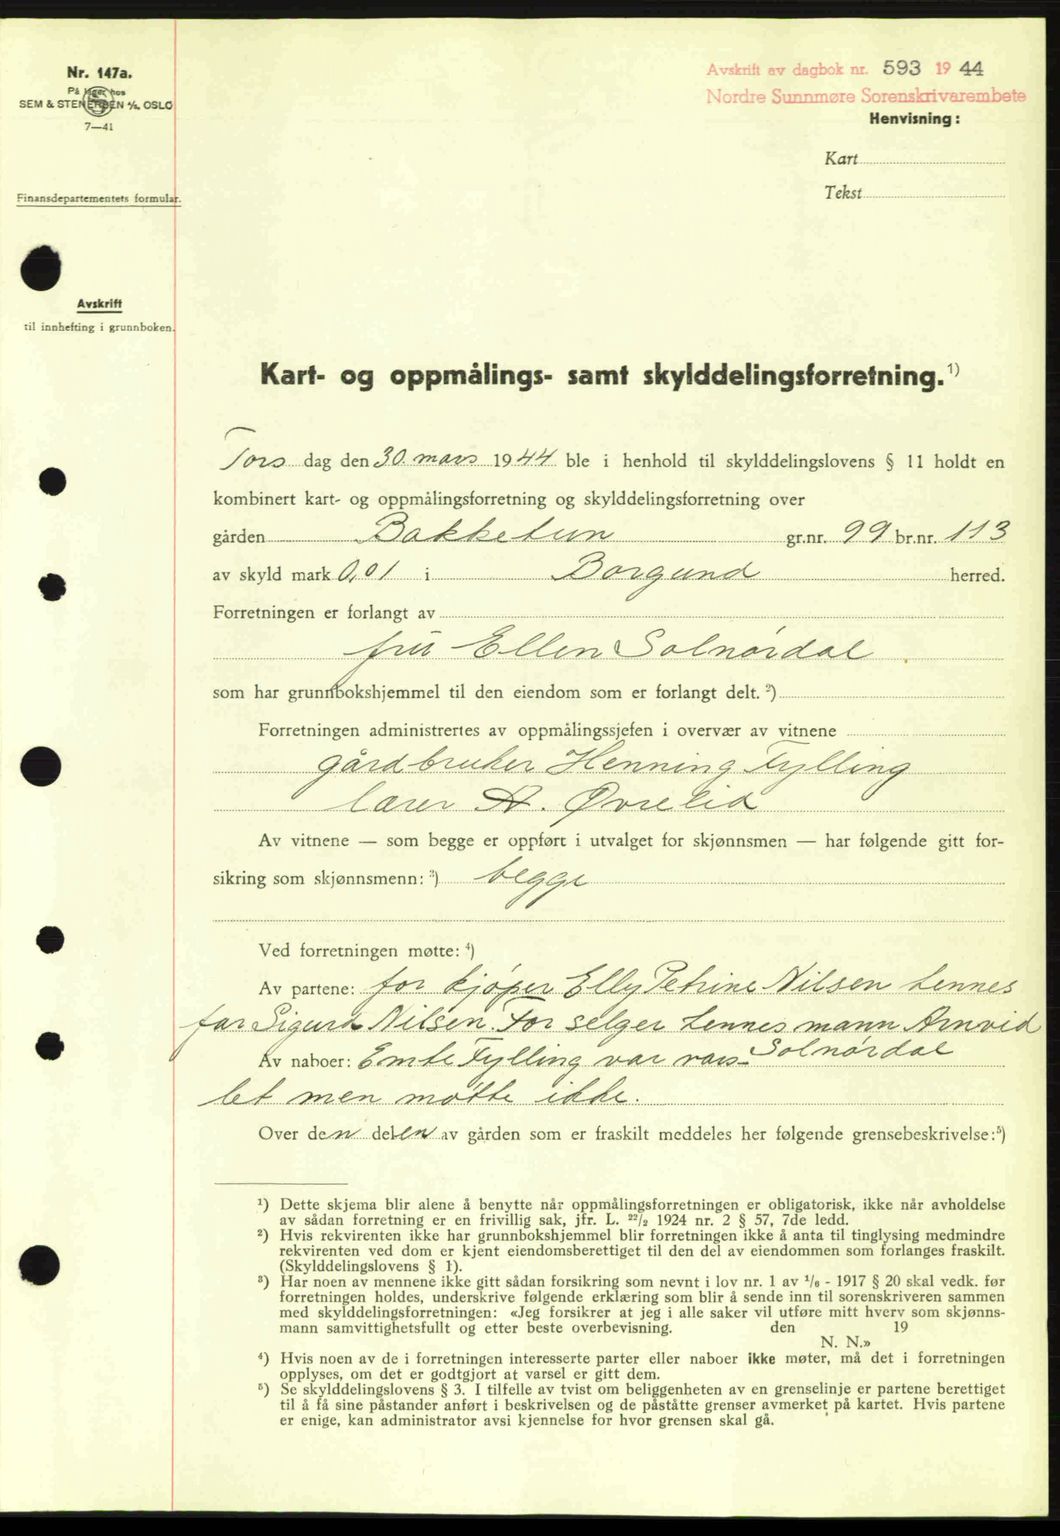 Nr. 147a.
På lager hos
SEM & STENERSEN A/S, OSLO
7—41
Finansdepartementets formular.
Avskrift
til innhefting i grunnboken.
Avskrift av dagbok nr. 593 19 44
Nordre Sunnmøre Sorenskrivarembete
Henvisning:
Kart
Tekst
Kart- og oppmålings- samt skylddelingsforretning.¹)
Tors dag den 30. mars 1944 ble i henhold til skylddelingslovens § 11 holdt en
kombinert kart- og oppmålingsforretning og skylddelingsforretning over
gården Bakketun gr.nr. 99 br.nr. 113
av skyld mark 0,01 i Borgund herred.
Forretningen er forlangt av
fru Ellen Solnørdal
som har grunnbokshjemmel til den eiendom som er forlangt delt. ²)
Forretningen administrertes av oppmålingssjefen i overvær av vitnene
gårdbruker Henning Fylling
lærer A. Øvrelid
Av vitnene — som begge er oppført i utvalget for skjønnsmen — har følgende gitt for-
sikring som skjønnsmenn: ³) begge
Ved forretningen møtte: ⁴)
Av partene: for kjøper Elly Petrine Nilsen hennes
far Sigurd Nilsen. For selger hennes mann Arnvid
Solnørdal
Av naboer: Fylling var vars-
let men møtte ikke.
Over den delen av gården som er fraskilt meddeles her følgende grensebeskrivelse:⁵)
¹) Dette skjema blir alene å benytte når oppmålingsforretningen er obligatorisk, ikke når avholdelse
av sådan forretning er en frivillig sak, jfr. L. ²²/₂ 1924 nr. 2 § 57, 7de ledd.
²) Hvis rekvirenten ikke har grunnbokshjemmel blir forretningen ikke å anta til tinglysing medmindre
rekvirenten ved dom er kjent eiendomsberettiget til den del av eiendommen som forlanges fraskilt.
(Skylddelingslovens § 1).
³) Har noen av mennene ikke gitt sådan forsikring som nevnt i lov nr. 1 av ¹/₆ - 1917 § 20 skal vedk. før
forretningen holdes, underskrive følgende erklæring som blir å sende inn til sorenskriveren sammen
med skylddelingsforretningen: «Jeg forsikrer at jeg i alle saker vil utføre mitt hverv som skjønns-
mann samvittighetsfullt og etter beste overbevisning. den 19
N. N.»
⁴) Hvis noen av de i forretningen interesserte parter eller naboer ikke møter, må det i forretningen
opplyses, om det er godtgjort at varsel er gitt dem.
⁵) Se skylddelingslovens § 3. I tilfelle av tvist om beliggenheten av en grenselinje er partene berettiget
til å få sine påstander anført i beskrivelsen og de påståtte grenser avmerket på kartet. Hvis partene
er enige, kan administrator avsi kjennelse for hvor grensen skal gå.